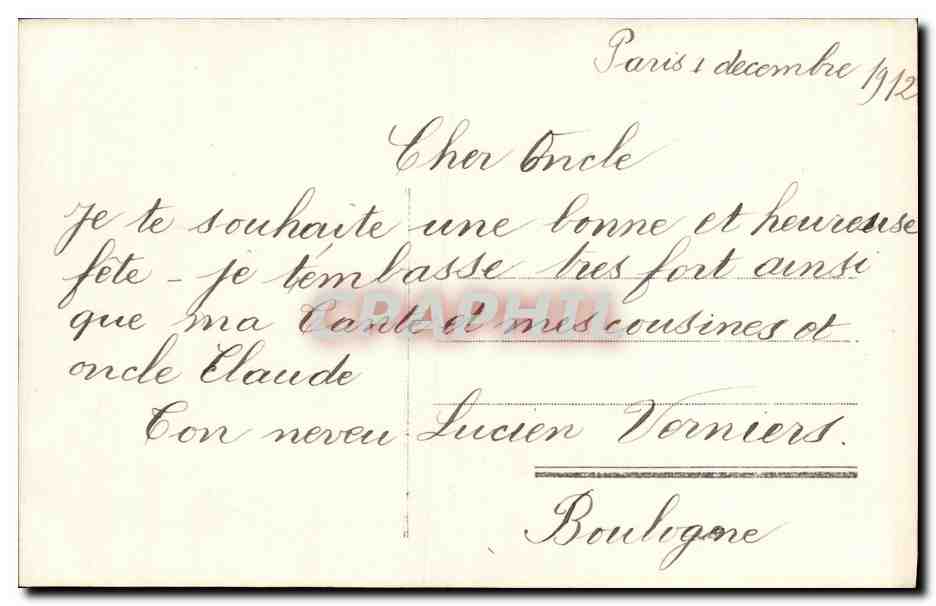 Paris 1 decembre 1912
Cher Oncle
Je te souhaite une bonne et heureuse
fête - je t'embasse tres fort ainsi
que ma Tante et mes cousines et
oncle Claude
Ton neveu Lucien Verniers.
Boulogne
CPAPHIL